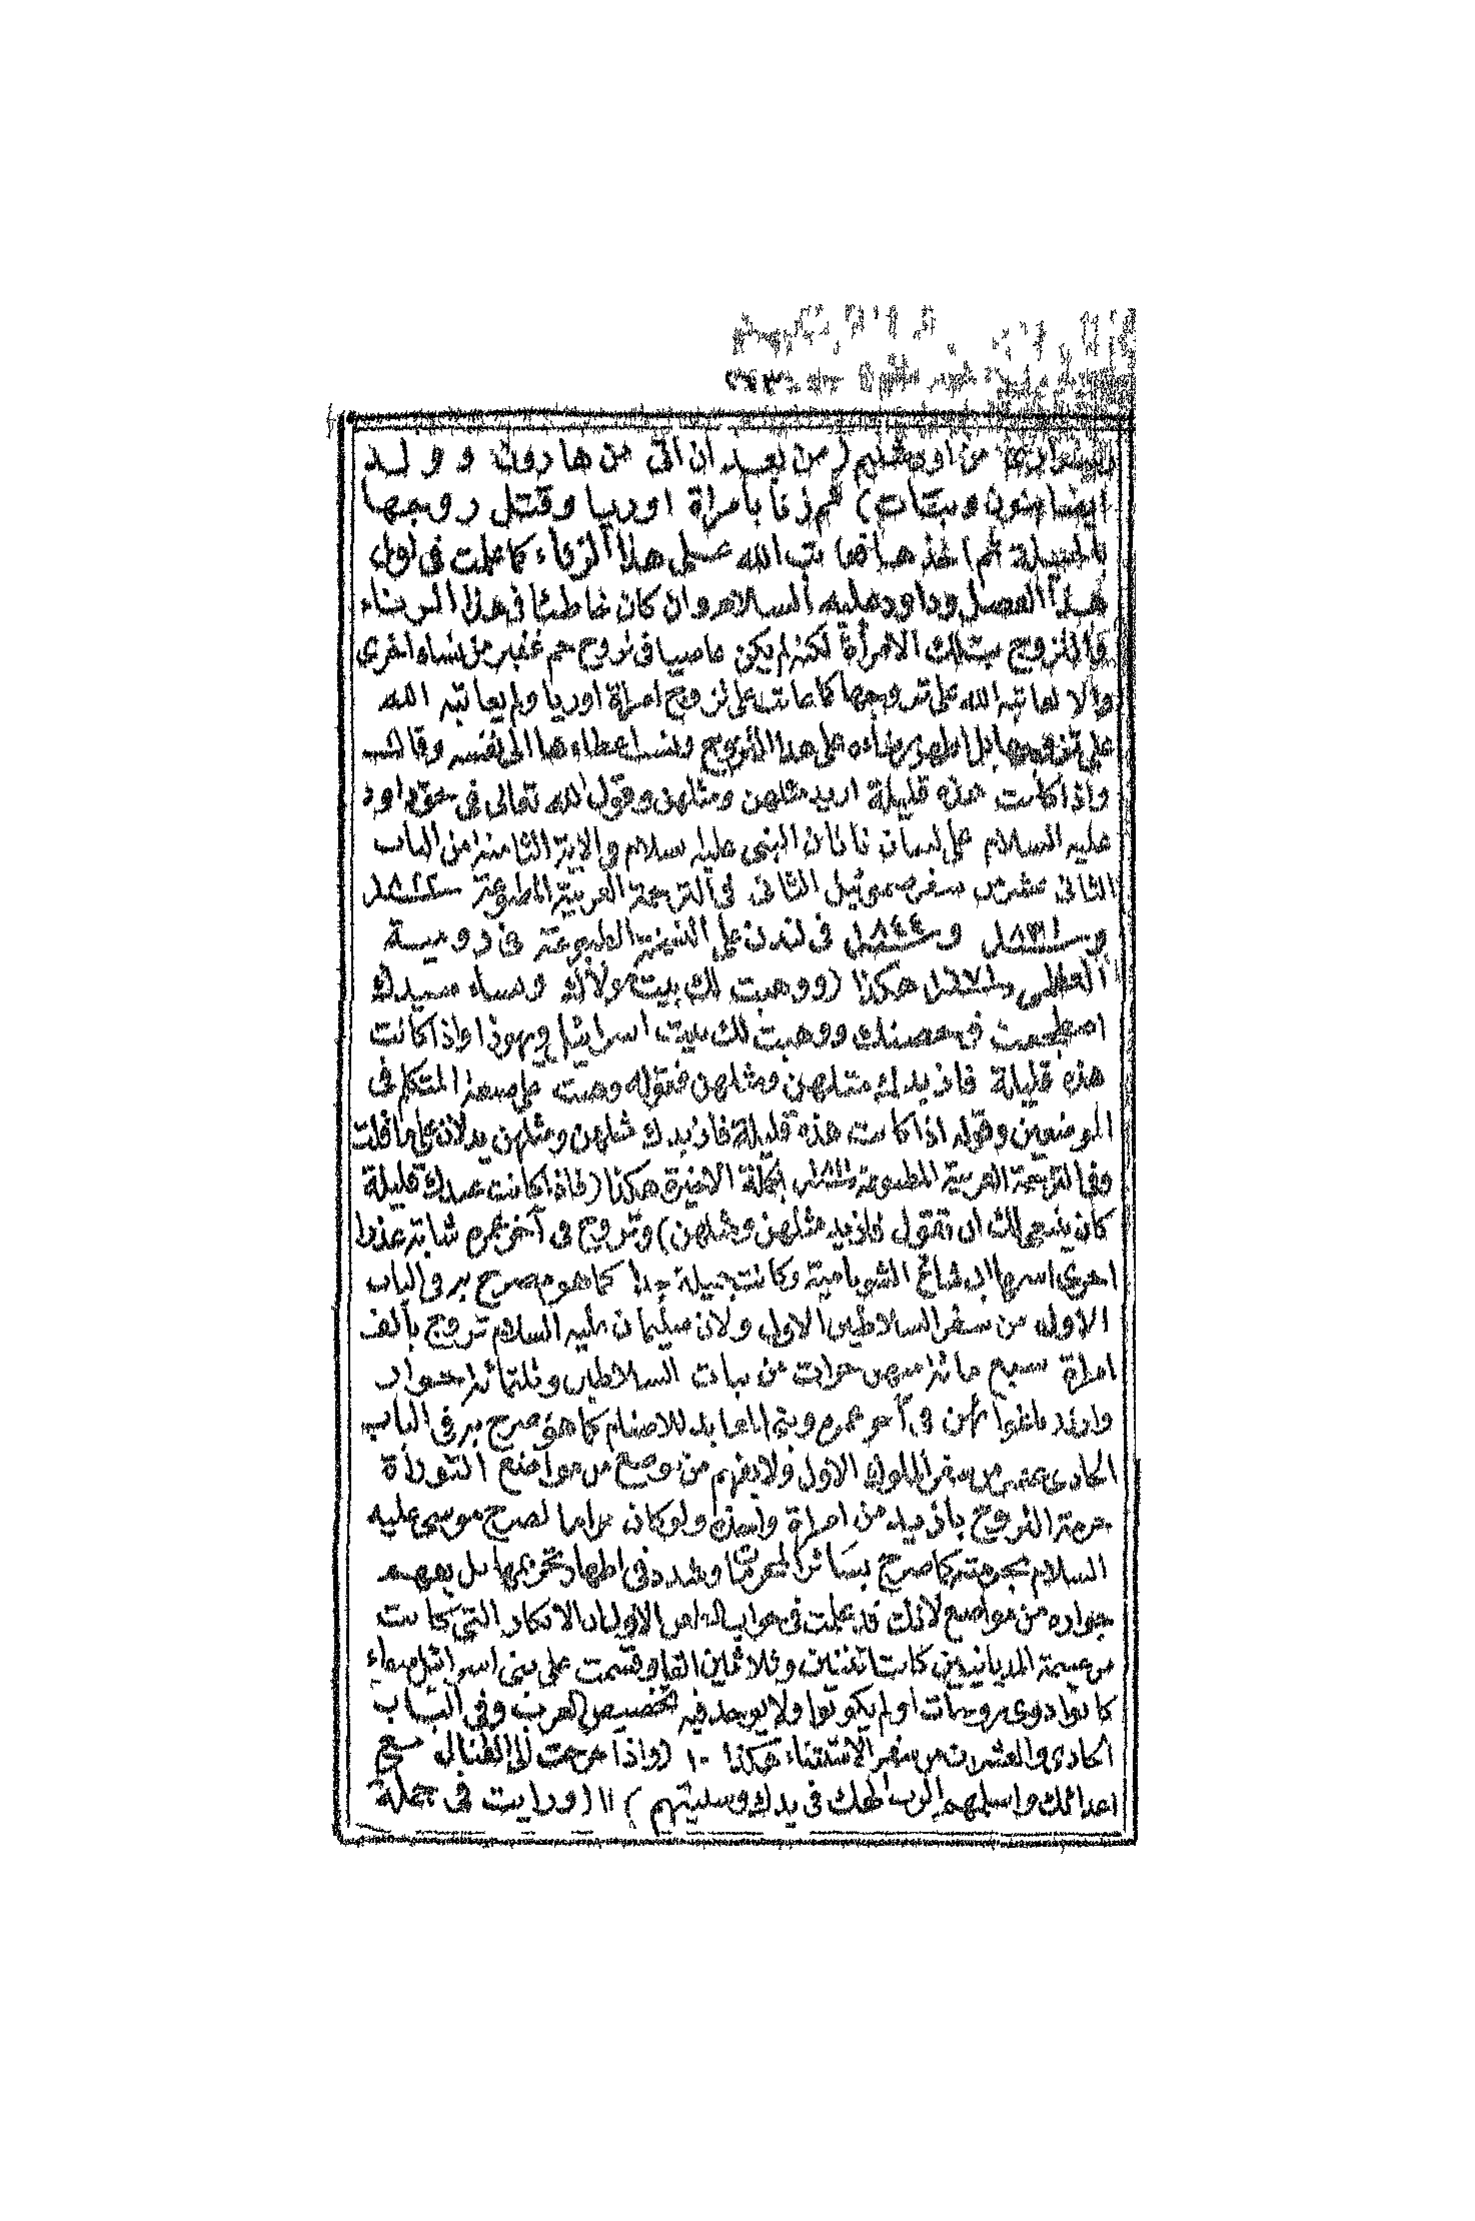 من اورشليم (من بعد ان اتى من هارون وولد
ايضا بنون وبنات) ثم زنا بامراة اوريا وقتل زوجها
بالحيلة ثم اخذها فعاتب الله على هذا الزناء كما علمت فى اول
هذا الفصل وداود عليه السلام وان كان خاطئا فى هذا الزناء
والتزوج بتلك الامرأة لكنه لم يكن عاصيا فى تزوج جم غفير من نساء اخرى
والا لعاتبه الله على تزوجها كما عاتب على تزوج امراة اوريا ولم يعاتبه الله
على تزوجها بل اظهر رضاءه على هذا التزوج ونسب اعطاءها الى نفسه وقال
واذا كانت هذه قليلة ازيد مثلهن ومثلهن وقول الله تعالى فى حق داود
عليه السلام على لسان ناتان النبى عليه سلام والاية الثامنة من الباب
الثانى عشر من سفر صموئيل الثانى فى الترجمة العربية المطبوعة سنة ١٨٢٢
وسنة ١٨٣١ وسنة ١٨٤٤ فى لندن على النسخة المطبوعة فى رومية
العظمى سنة ١٦٧١ هكذا (ووهبت لك بيت مولاك ونساء سيدك
اضطجعت فى حصنك ووهبت لك بيت اسرائيل ويهوذا واذا كانت
هذه قليلة فازيدك مثلهن ومثلهن فقوله وهبت على صيغة المتكلم فى
الموضعين وقوله اذا كانت هذه قليلة فازيدك مثلهن ومثلهن يدلان على ما قلت
وفى الترجمة العربية المطبوعة سنة الجملة الاخيرة هكذا (فاذا كانت عندك قليلة
كان ينبغى لك ان تقول فازيد مثلهن ومثلهن) وتزوج فى آخر عمره شابة عذرا
اخرى اسمها ابى شاغ الشونامية وكانت جميلة جدا كما هو مصرح به فى الباب
الاول من سفر السلاطين الاول ولان سليمان عليه السلام تزوج بالف
امراة سبع مائة منهن حرات من بنات السلاطين وثلثمائة جوار
وارتد باغوائهن فى آخر عمره وبنى المعابد للاصنام كما هو مصرح به فى الباب
الحادى عشر من سفر الملوك الاول ولا يفهم من موضع من مواضع التوراة
حرمة التزوج بازيد من امراة واحدة ولو كان حراما لصرح موسى عليه
السلام بحرمته كما صرح بسائر المحرمات وشدد فى اظهار تحريمها بل يفهم
جوازه من مواضع لانك قد علمت فى جواب الطعن الاول ان الابكار التى كانت
من غنيمة المديانيين كانت اثنتين وثلاثين الفا وقسمت على بنى اسرائيل سواء
كانوا ذوى زوجات او لم يكونوا ولا يوجد فيه تخصيص العزب وفى الباب
الحادى والعشرين من سفر الاستثناء هكذا ١٠ (واذا خرجت الى القتال مع
اعدائك واسلمهم الرب الهك فى يدك وسبيتهم) ١١ (ورايت فى جملة